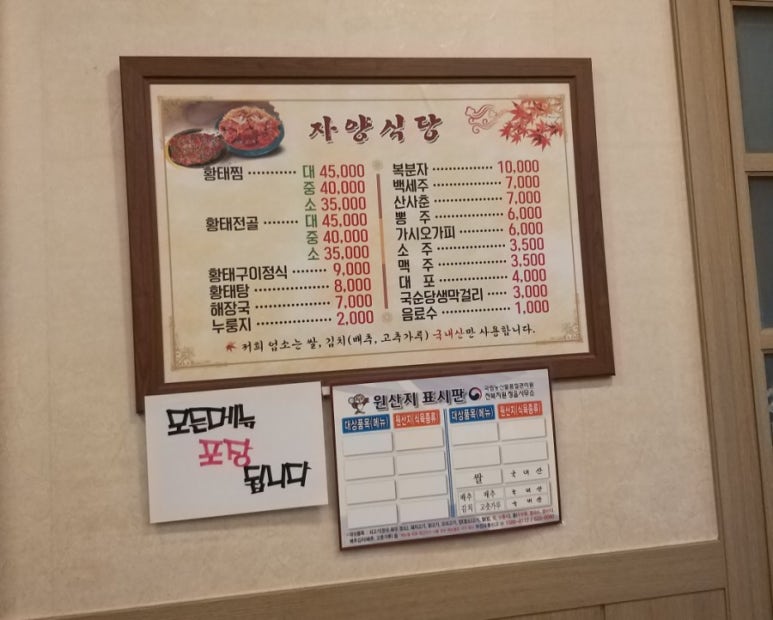 자양식당
황태찜 ·········· 대 45,000
중 40,000
소 35,000
황태전골 ······ 대 45,000
중 40,000
소 35,000
황태구이정식 ······ 9,000
황태탕 ············ 8,000
해장국 ············ 7,000
누룽지 ············ 2,000
복분자 ············ 10,000
백세주 ············ 7,000
산사춘 ············ 7,000
뽕 주 ············ 6,000
가시오가피 ········ 6,000
소 주 ············ 3,500
맥 주 ············ 3,500
대 포 ············ 4,000
국순당생막걸리 ···· 3,000
음료수 ············ 1,000
저희 업소는 쌀, 김치(배추, 고추가루) 국내산만 사용합니다.
모든메뉴
포장
됩니다
원산지 표시판
국립농산물품질관리원
전북지원 정읍사무소
대상품목(메뉴) 원산지(식육종류) 대상품목(메뉴) 원산지(식육종류)
쌀 국내산
배추 배추 국내산
김치 고춧가루 국내산